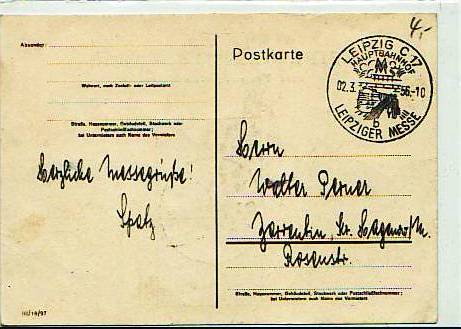 4,-
Absender:
Wohnort, auch Zustell- oder Leitpostamt
Straße, Hausnummer, Gebäudeteil, Stockwerk oder
Postschließfachnummer;
bei Untermietern auch Name des Vermieters
Herzliche Messegrüße!
Spatz
III/18/97
Postkarte
LEIPZIG C 17
HAUPTBAHNHOF
MM
02.3. 56.-10
b
LEIPZIGER MESSE
Herrn
Walter Perner
Zarrentin, Kr. Hagenow/M.
Rosenstr.
Straße, Hausnummer, Gebäudeteil, Stockwerk oder Postschließfachnummer;
bei Untermietern auch Name des Vermieters